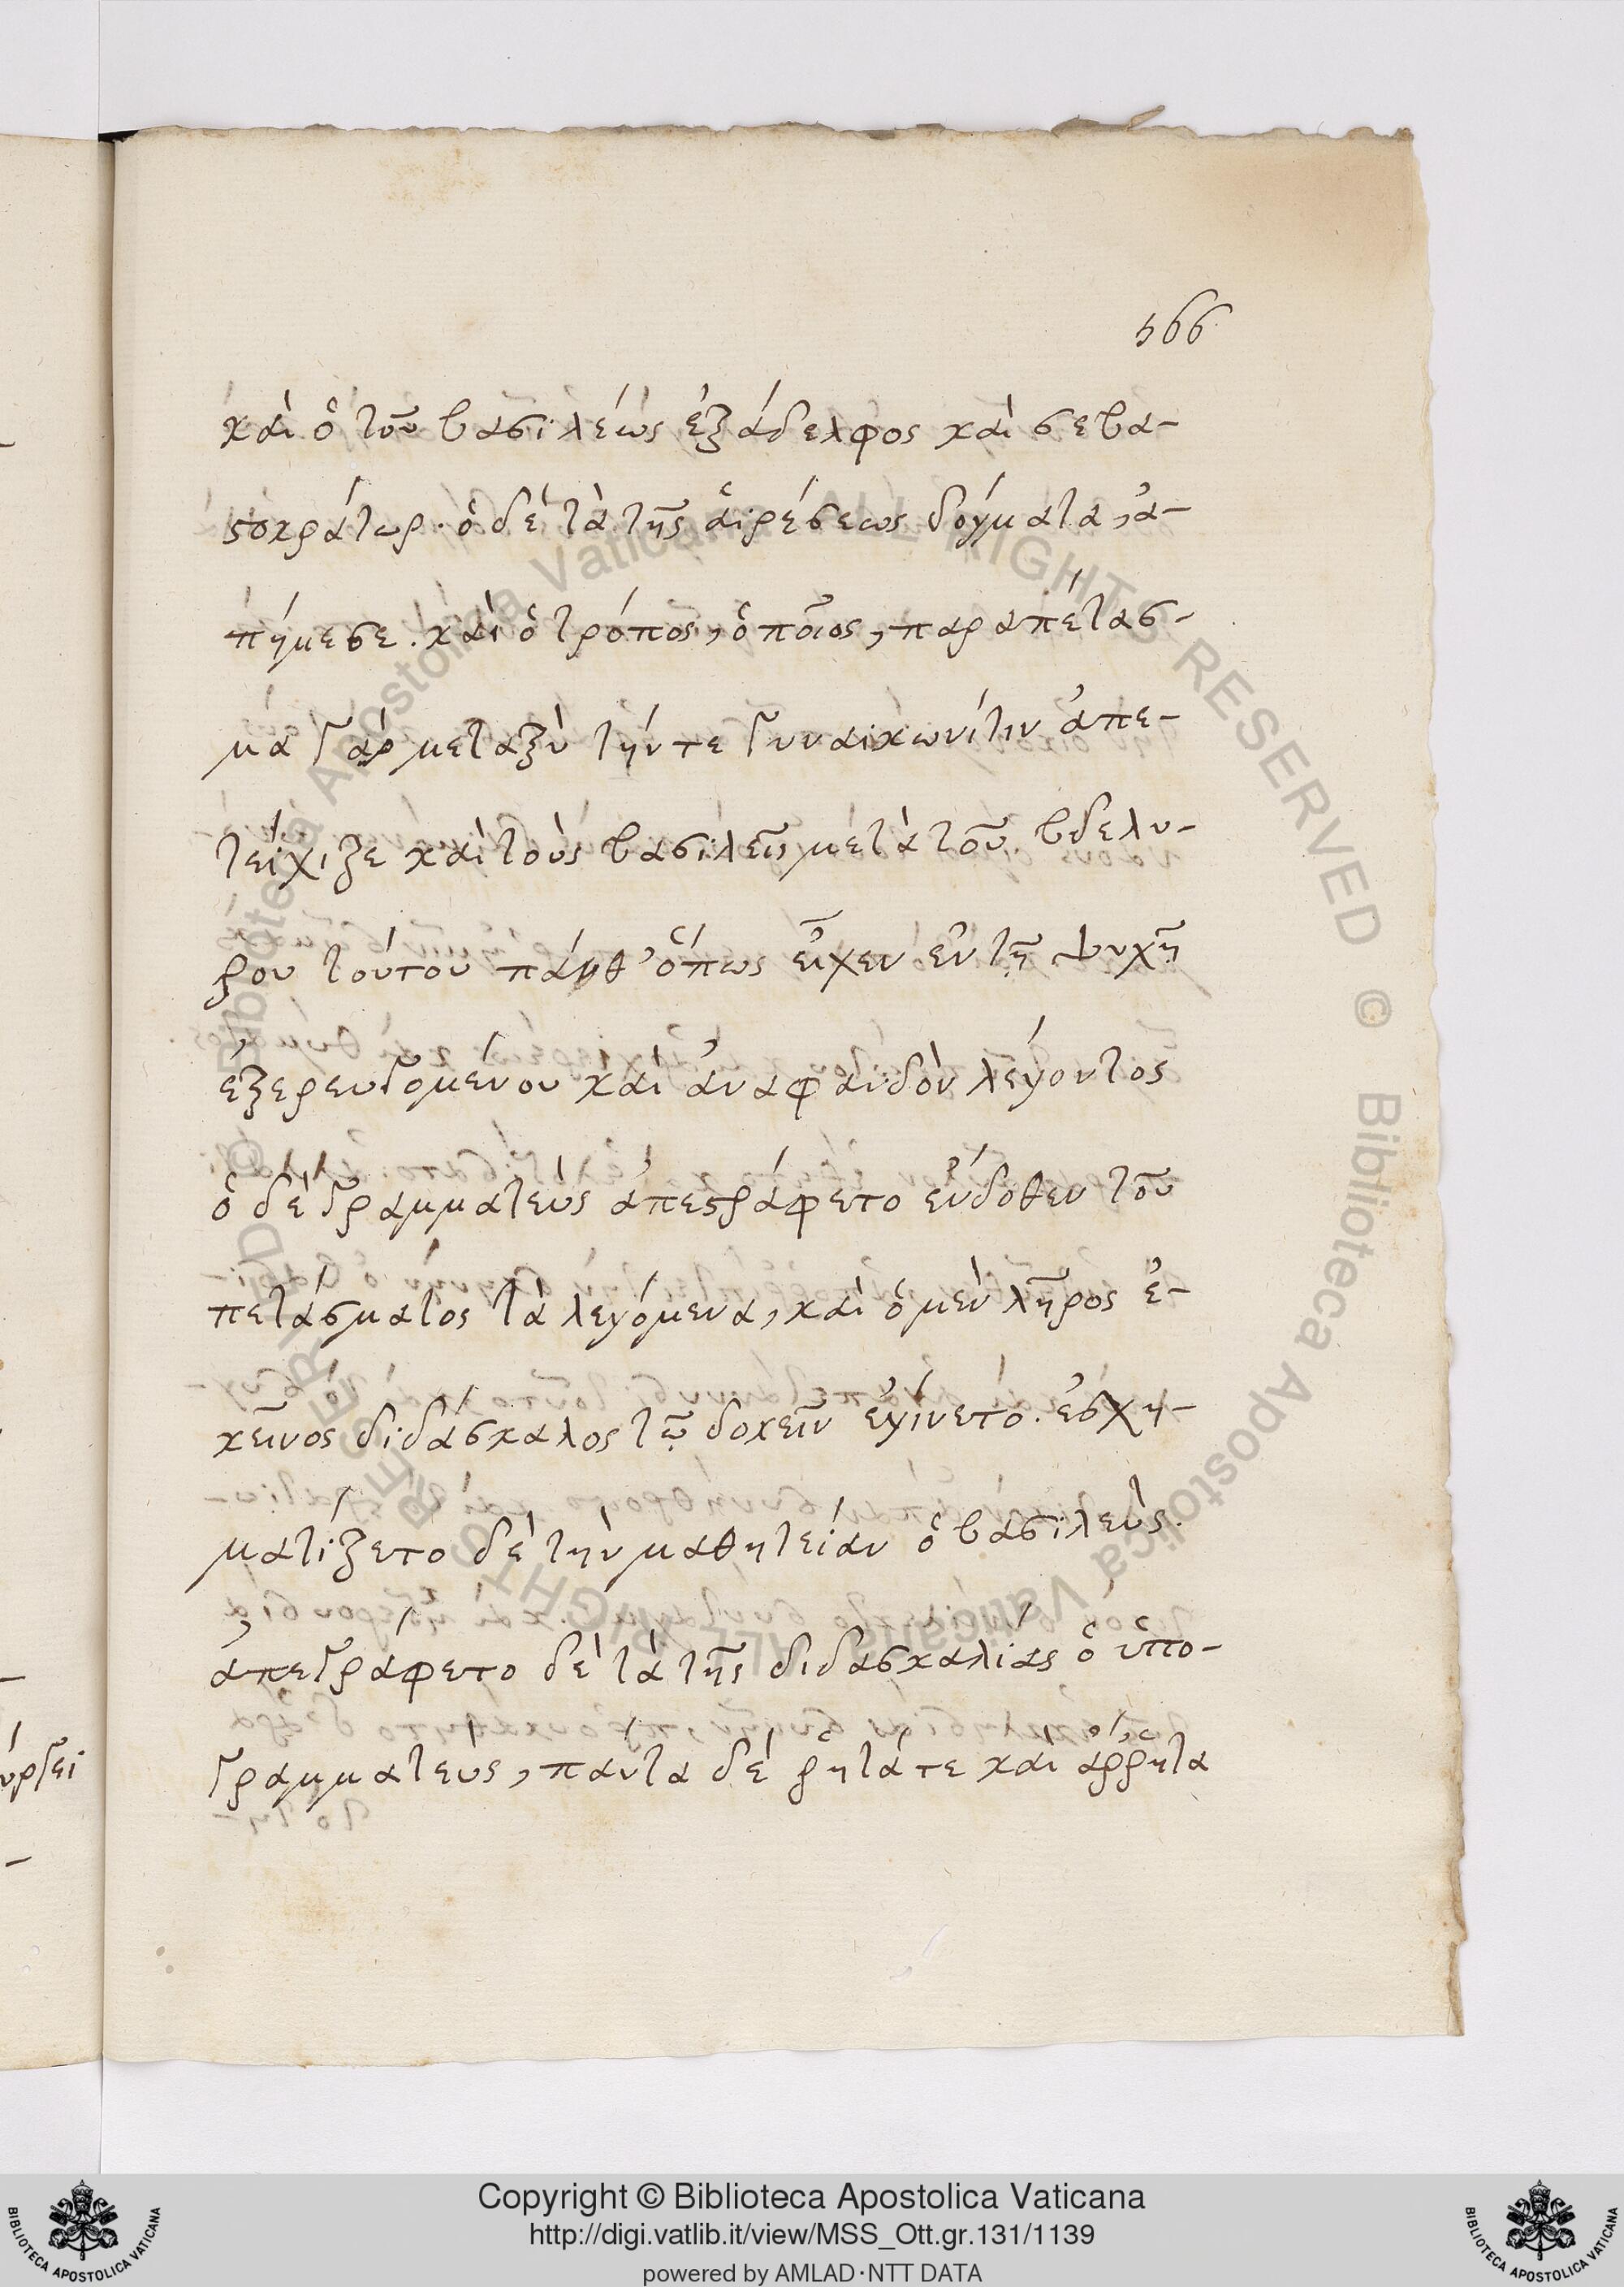 566
καὶ ὁ τοῦ βασιλέως ἐξάδελφος καὶ σεβα-
στοκράτωρ. ὁ δὲ τὰ τῆς αἱρέσεως δόγματα, ἀ-
πήμεσε. καὶ ὁ τρόπος, ὁποῖος, παραπέτασ-
μα γὰρ μεταξὺ τήντε γυναικωνίτιν ἀπε-
τείχιζε καὶ τοὺς βασιλεῖς μετὰ τοῦ βδελυ-
ροῦ τούτου πάνθ' ὅπως εἶχεν ἐν τῇ ψυχῇ
ἐξερευγομένου καὶ ἀναφανδὸν λέγοντος
ὁ δὲ γραμματεὺς ἀπεγράφετο ἔνδοθεν τοῦ
πετάσματος τὰ λεγόμενα, καὶ ὁ μὲν λῆρος ἐ-
κεῖνος διδάσκαλος τῷ δοκεῖν ἐγίνετο. ἐσχη-
ματίζετο δὲ τὴν μαθητείαν ὁ βασιλεὺς.
ἀπεγράφετο δὲ τὰ τῆς διδασκαλίας ὁ ὑπο-
γραμματεὺς, πάντα δὲ ῥητάτε καὶ ἄῤῥητα
Copyright © Biblioteca Apostolica Vaticana
http://digi.vatlib.it/view/MSS_Ott.gr.131/1139
powered by AMLAD·NTT DATA